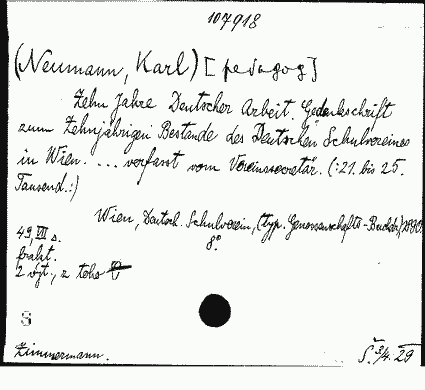 107918
(Neumann, Karl) [pedagog]
Zehn Jahre Deutscher Arbeit. Gedenkschrift
zum Zehnjährigen Bestande des Deutschen Schulvereines
in Wien. ... verfasst vom Vereinssecretär. (:21. bis 25.
Tausend.:)
Wien, Deutsch. Schulverein, (typ. Genossenschafts-Buchdr.)
8°.
49, VII s.
brakt.
2 výt., z toho
8
Zimmermann.
Š. 3/4. 29